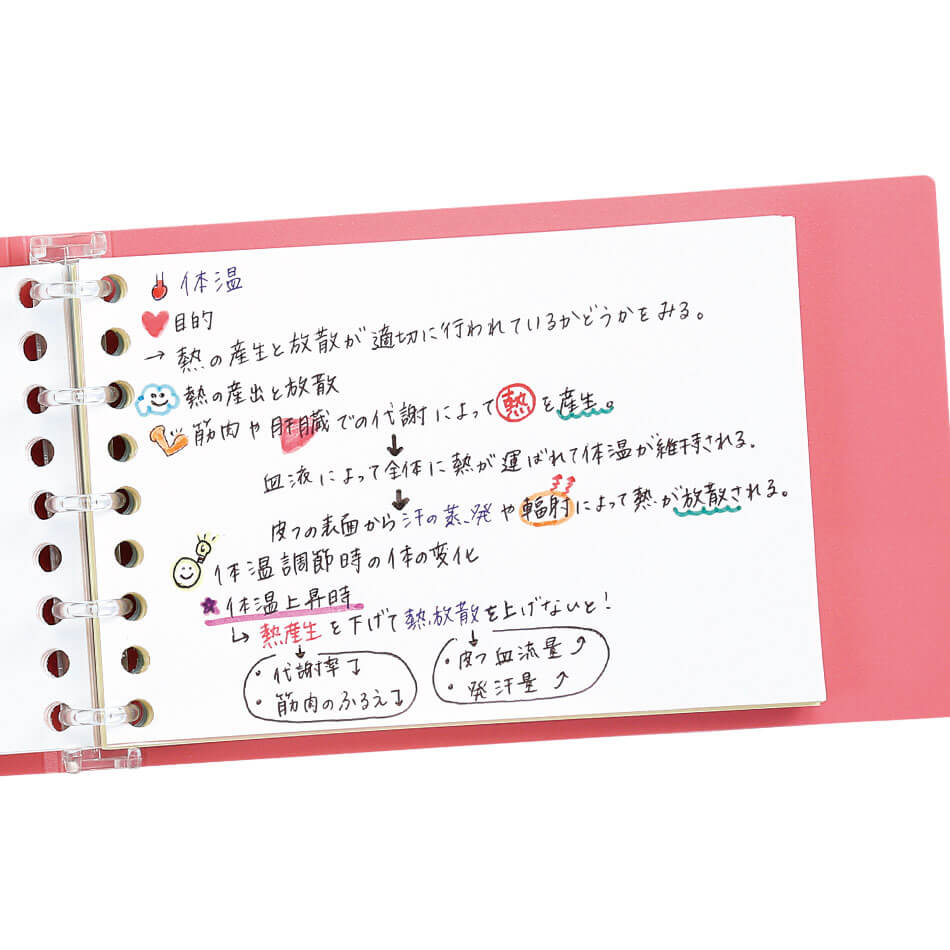 体温
目的
→ 熱の産生と放散が適切に行われているかどうかをみる。
熱の産出と放散
筋肉や肝臓での代謝によって熱を産生。
↓
血液によって全体に熱が運ばれて体温が維持される。
↓
皮フの表面から汗の蒸発や輻射によって熱が放散される。
体温調節時の体の変化
★ 体温上昇時
↳ 熱産生を下げて熱放散を上げないと!
↓ ↓
・代謝率↓ ・皮フ血流量↑
・筋肉のふるえ↓ ・発汗量↑